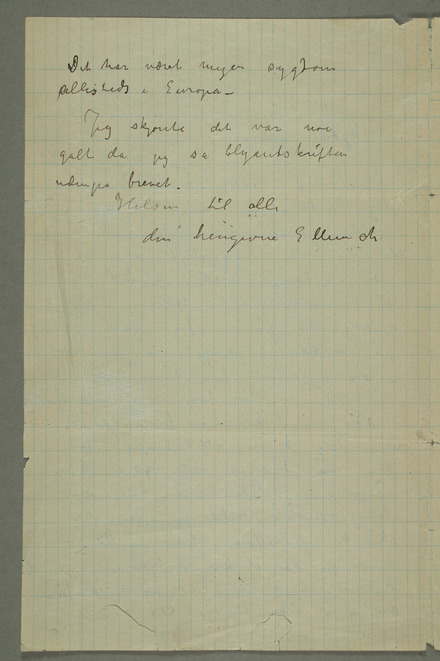 Det har været megen sygdom
allesteds i Europa –
Jeg skjønte det var noe
galt da jeg så blyantskriften
udenpå brevet.
Hilsen til alle
din hengivne E Munch